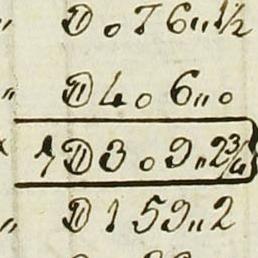 " D 0 7 6 " 1/2
" D 4 0 6 " 0
1 D 3 0 9 " 2 3/4
" D 1 5 9 " 2